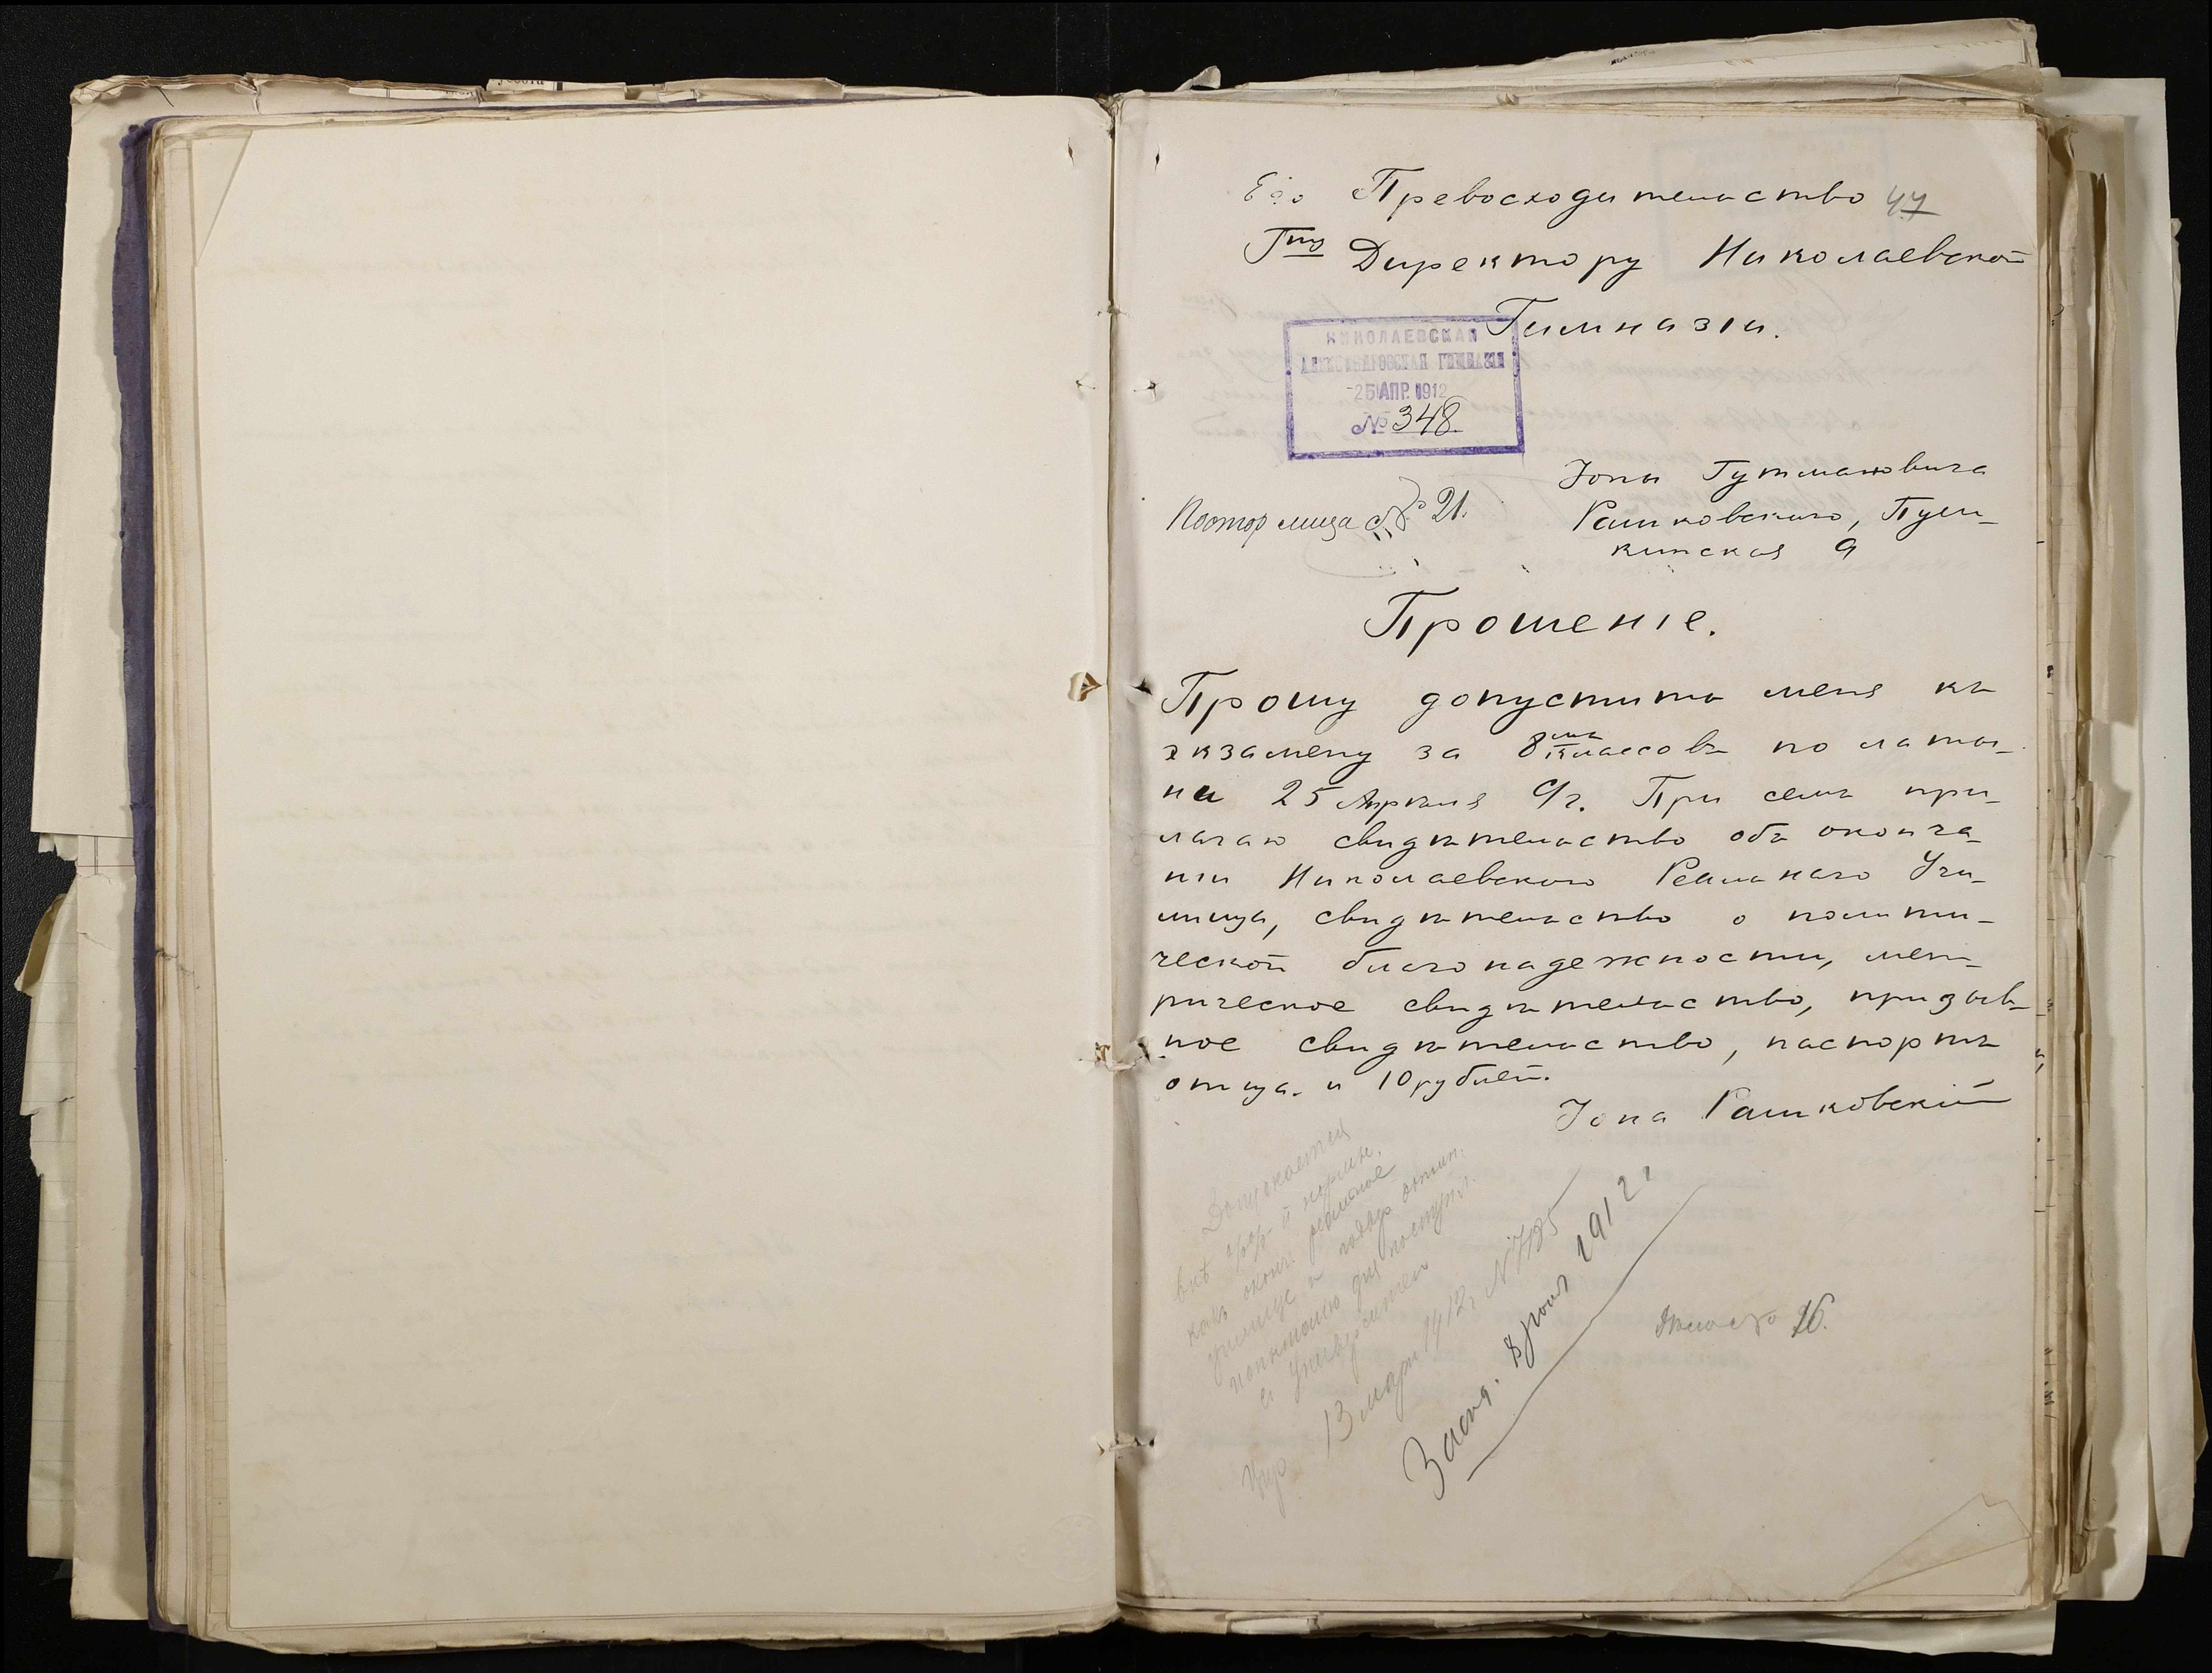 Его Превосходительство 47
Гну Директору Николаевской
Гимназіи.
НИКОЛАЕВСКАЯ
АЛЕКСАНДРОВСКАЯ ГИМНАЗІЯ
25 АПР. 1912
№ 348.
Іоны Гутмановича
Рашковскаго, Пуш-
кинская 9
№ 21.
Прошеніе.
Прошу допустить меня къ
экзамену за 8 классовъ по латы-
ни 25 Апрѣля с/г. При семъ при-
лагаю свидѣтельство объ оконча-
ніи Николаевскаго Реальнаго Учи-
лища, свидѣтельство о полити-
ческой благонадежности, мет-
рическое свидѣтельство, призыв-
ное свидѣтельство, паспортъ
отца. и 10 рублей.
Іона Рашковскій
Допускается
внѣ %% й нормы,
какъ оконч. реальное
училище и подверг. экзам.
для поступл.
въ Университет
13 марта 1912 г. N 7125
Засѣд. 8 1912 г